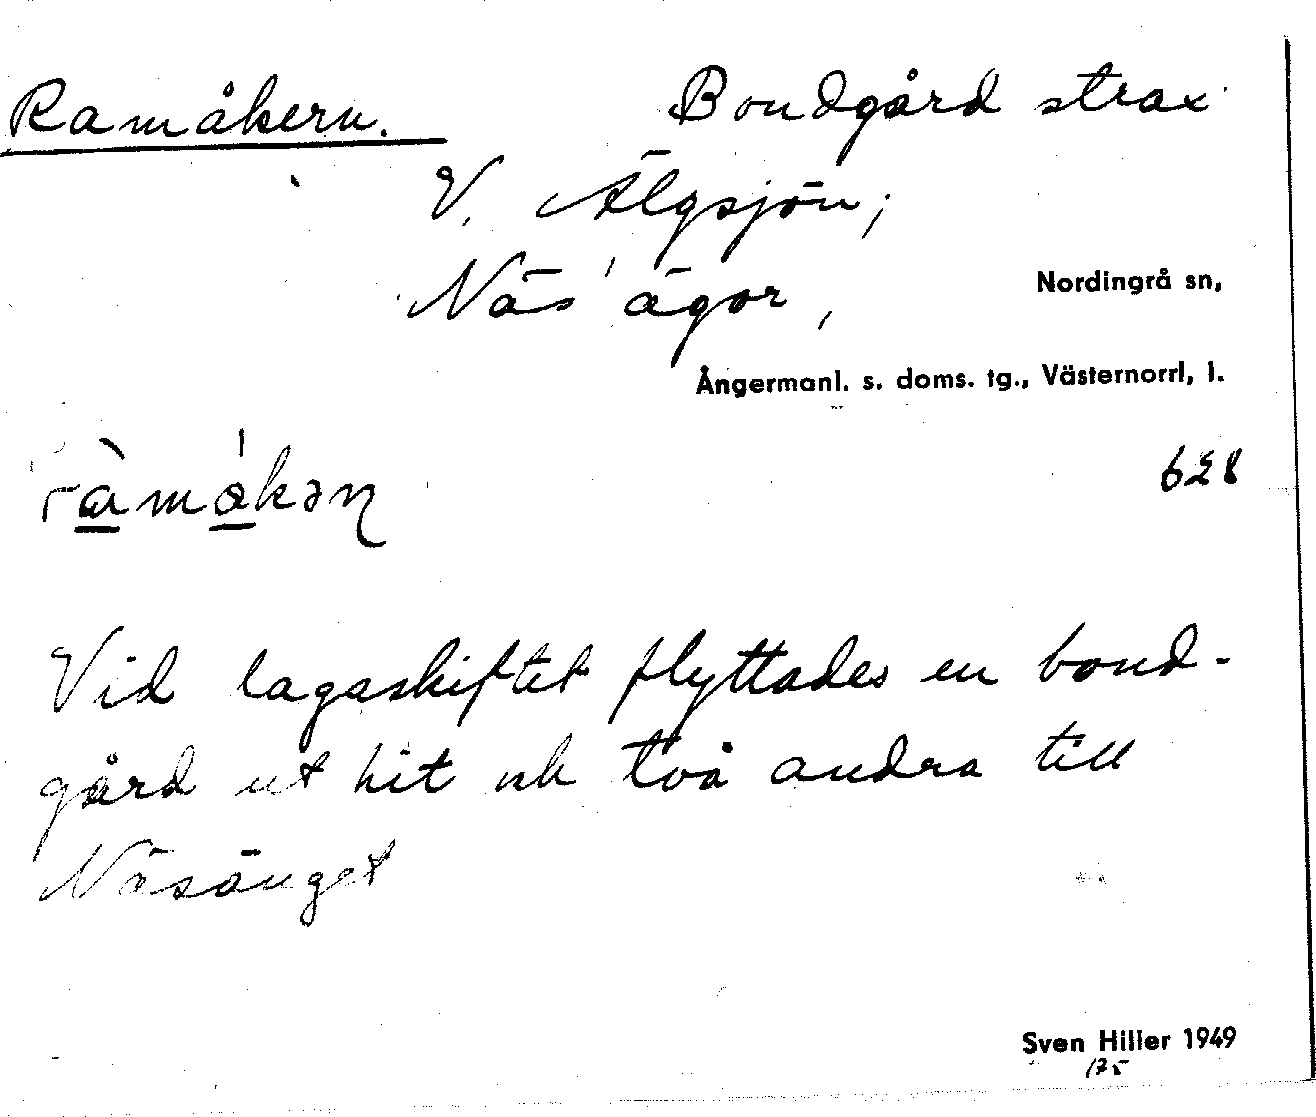 Ramåkern. Bondgård strax
V. Älgsjön;
Näs' ägor,
Nordingrå sn,
Ångermanl. s. doms. tg., Västernorrl, l.
628
Vid lagaskiftet flyttades en bond-
gård ut hit och två andra till
Näsänget
Sven Hiller 1949
175